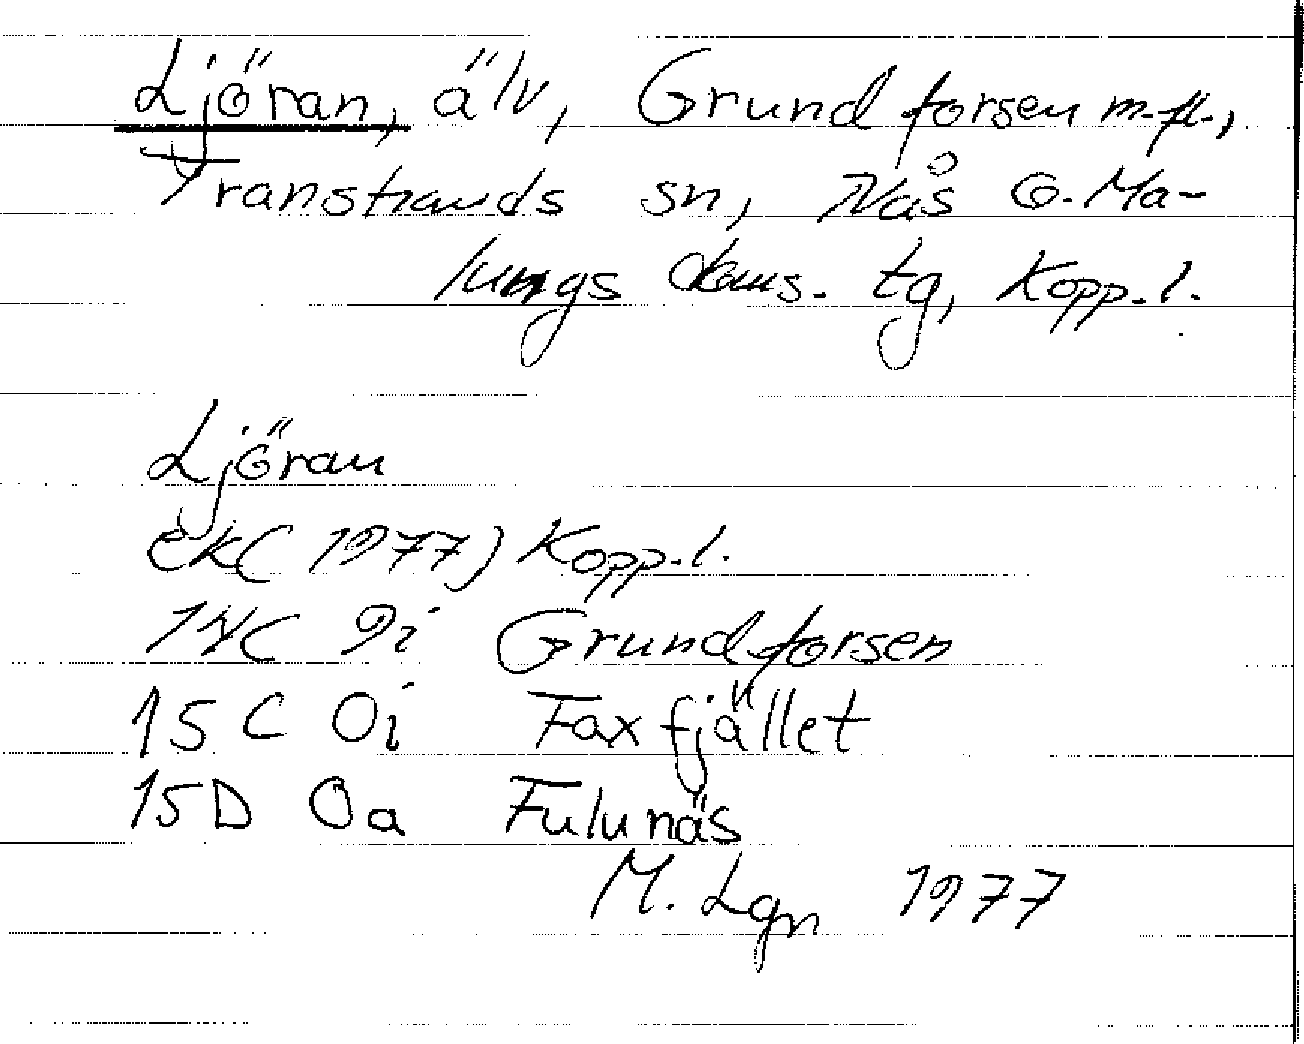 Ljöran, älv, Grundforsen m.fl.,
Transtrands sn, Nås o. Ma-
lungs doms. tg, Kopp. l.
Ljöran
ek (1977) Kopp. l.
14C 9i Grundforsen
15C 0i Faxfjället
15D 0a Fulunäs
M. Lgn 1977